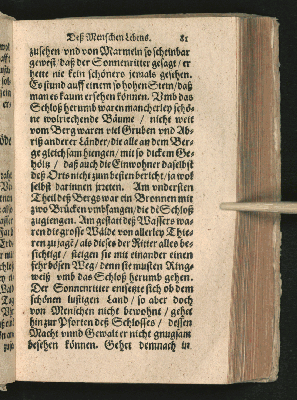 Deß Menschen Lebens. 81
zusehen vnd von Marmeln so scheinbar
gewest/ daß der Sonnenritter gesagt/ er
hette nie kein schöners jemals gesehen.
Es stund auff einem so hohen Stein/ daß
man es kaum ersehen können. Vmb das
Schloß herumb waren mancherley schö-
ne wolriechende Bäume / nicht weit
vom Berg waren viel Gruben vnd Ab-
riß anderer Länder/ die alle an dem Ber-
ge gleichsam hiengen/ mit so dickem Ge-
höltz / daß auch die Einwohner daselbst
deß Orts nicht zum besten bericht/ ja wol
selbst darinnen jrreten. Am vndersten
Theil deß Bergs war ein Bronnen mit
zwo Brücken vmbfangen/ die bey Schloß
zugiengen. Am gestatt deß Wassers wa-
ren die grosse Wälde von allerley Thie-
ren zu jagē/ als dieses der Ritter alles be-
sichtigt / steigen sie mit einander einen
sehr bösen Weg/ denn sie musten Rings-
weiß vmb das Schloß herumb gehen.
Der Sonnenritter entsetzte sich ob dem
schönen lustigen Land / so aber doch
von Menschen nicht bewohnt / gehet
hin zur Pforten deß Schlosses / dessen
Macht vnnd Gewalt er nicht gnugsam
besehen können. Gehet demnach in